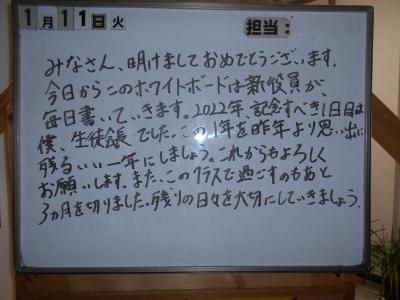 1月11日火
担当:
みなさん、明けましておめでとうございます。
今日からこのホワイトボードは新役員が、
毎日書いていきます。2022年記念すべき1日目は
僕、生徒会長でした。この1年を昨年より思い出に
残るいい一年にしましょう。これからもよろしく
お願いします。また、このクラスで過ごすのもあと
3ヵ月を切りました。残りの日々を大切にしていきましょう。